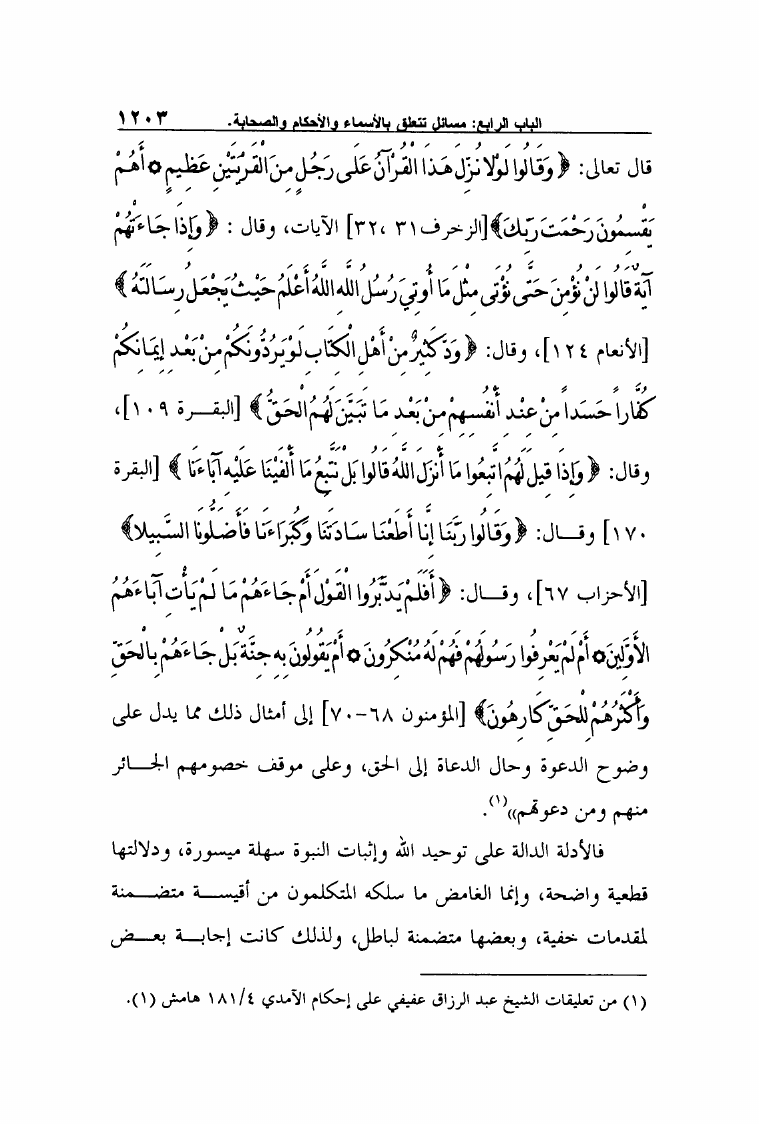 الباب الرابع: مسائل تتعلق بالأسماء والأحكام والصحابة. ١٢٠٣
قال تعالى: ﴿وَقَالُوا لَوْلَا نُزِّلَ هَذَا الْقُرْآنُ عَلَى رَجُلٍ مِنَ الْقَرْيَتَيْنِ عَظِيمٍ ۞ أَهُمْ
يَقْسِمُونَ رَحْمَتَ رَبِّكَ﴾[الزخرف ٣١، ٣٢] الآيات، وقال : ﴿وَإِذَا جَاءَتْهُمْ
آيَةٌ قَالُوا لَنْ نُؤْمِنَ حَتَّى نُؤْتَى مِثْلَ مَا أُوتِيَ رُسُلُ اللَّهِ اللَّهُ أَعْلَمُ حَيْثُ يَجْعَلُ رِسَالَتَهُ﴾
[الأنعام ١٢٤]، وقال: ﴿وَدَّ كَثِيرٌ مِنْ أَهْلِ الْكِتَابِ لَوْ يَرُدُّونَكُمْ مِنْ بَعْدِ إِيمَانِكُمْ
كُفَّاراً حَسَداً مِنْ عِنْدِ أَنْفُسِهِمْ مِنْ بَعْدِ مَا تَبَيَّنَ لَهُمُ الْحَقُّ﴾ [البقـــرة ١٠٩]،
وقال: ﴿وَإِذَا قِيلَ لَهُمُ اتَّبِعُوا مَا أَنْزَلَ اللَّهُ قَالُوا بَلْ نَتَّبِعُ مَا أَلْفَيْنَا عَلَيْهِ آبَاءَنَا ﴾ [البقرة
١٧٠] وقـــال: ﴿وَقَالُوا رَبَّنَا إِنَّا أَطَعْنَا سَادَتَنَا وَكُبَرَاءَنَا فَأَضَلُّونَا السَّبِيلا﴾
[الأحزاب ٦٧]، وقـــال: ﴿أَفَلَمْ يَدَّبَّرُوا الْقَوْلَ أَمْ جَاءَهُمْ مَا لَمْ يَأْتِ آبَاءَهُمُ
الأَوَّلِينَ ۞ أَمْ لَمْ يَعْرِفُوا رَسُولَهُمْ فَهُمْ لَهُ مُنْكِرُونَ ۞ أَمْ يَقُولُونَ بِهِ جِنَّةٌ بَلْ جَاءَهُمْ بِالْحَقِّ
وَأَكْثَرُهُمْ لِلْحَقِّ كَارِهُونَ﴾ [المؤمنون ٦٨-٧٠] إلى أمثال ذلك مما يدل على
وضوح الدعوة وحال الدعاة إلى الحق، وعلى موقف خصومهم الجـــائر
منهم ومن دعوتهم»(١).
فالأدلة الدالة على توحيد الله وإثبات النبوة سهلة ميسورة، ودلالتها
قطعية واضحة، وإنما الغامض ما سلكه المتكلمون من أقيســـة متضـــمنة
لمقدمات خفية، وبعضها متضمنة لباطل، ولذلك كانت إجابـــة بعـــض
(١) من تعليقات الشيخ عبد الرزاق عفيفي على إحكام الآمدي ١٨١/٤ هامش (١).